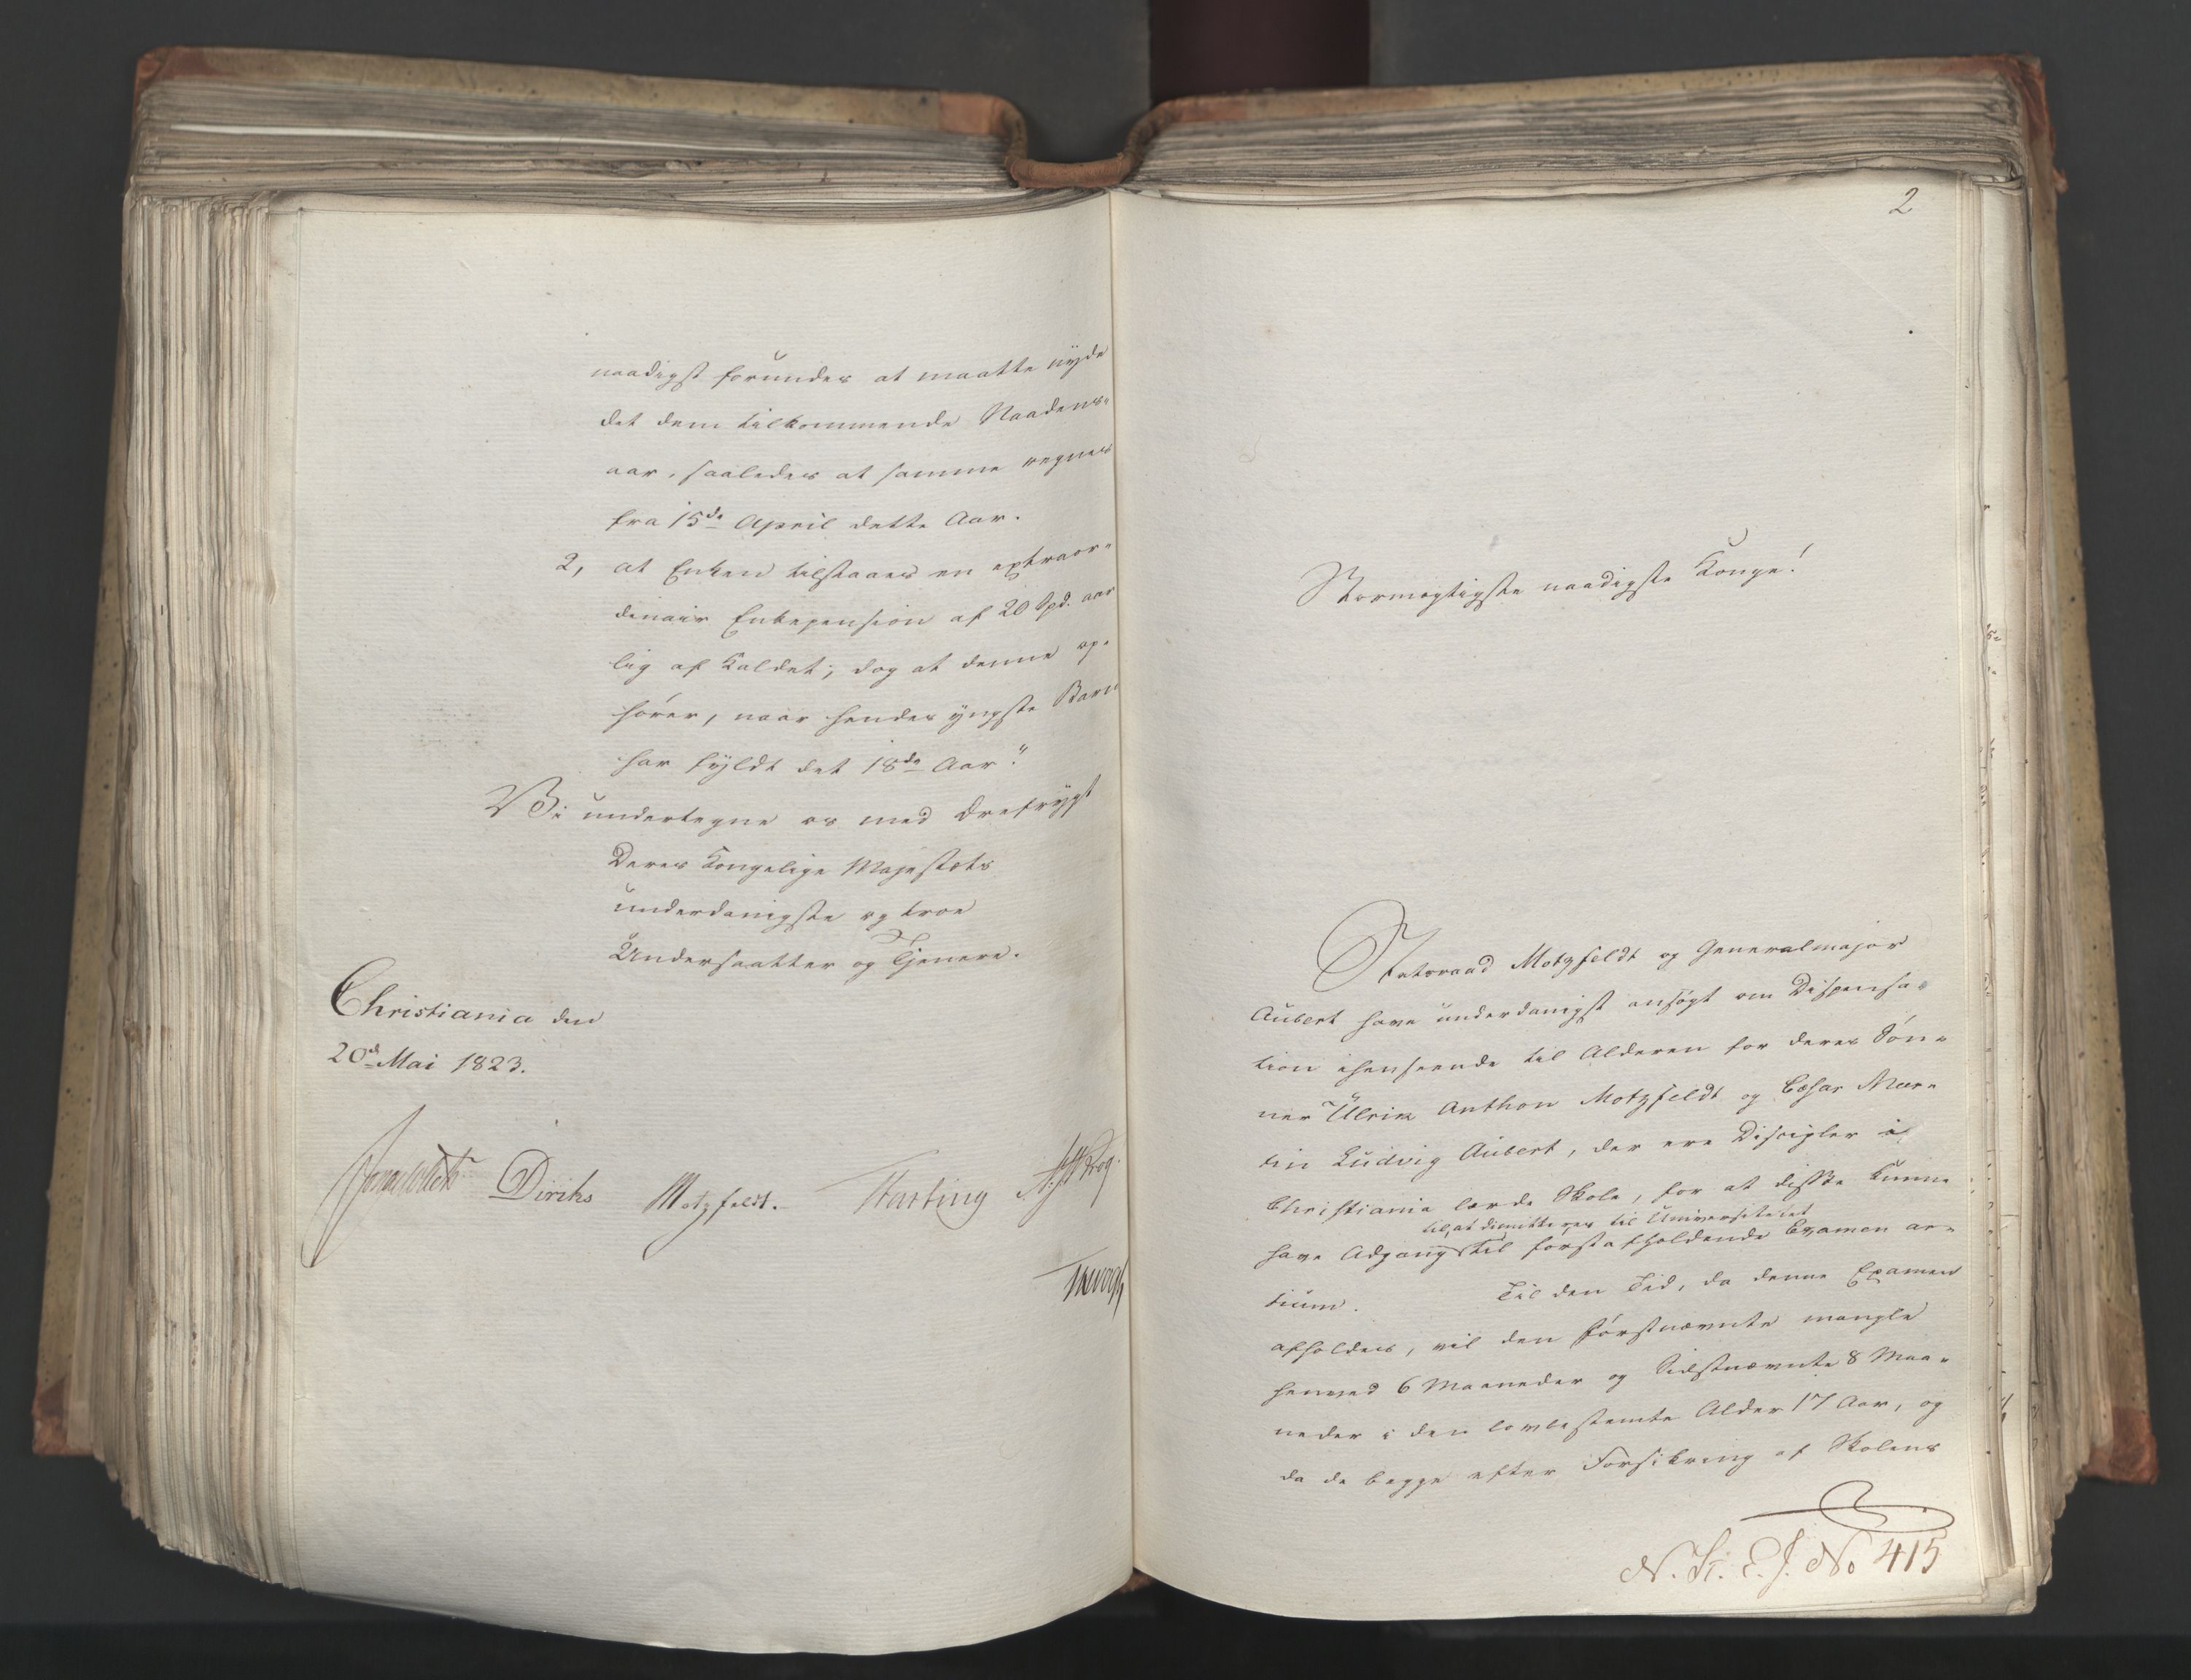 naadigst forundes at maatte nyde
det dem tilkommende Naadens-
aar, saaledes at samme regnes
fra 15de April dette Aar.
2, at Enken tilstaaes en extraor-
dinair Enkepension af 20 Spd. aar
lig af Kaldet; dog at denne op-
hører, naar hendes yngste Barn
har fyldt det 18de Aar."
Vi undertegne os med Ærefrygt
Deres Kongelige Majestæts
underdanigste og troe
Undersaatter og Tjenere.
Christiania den
20de Mai 1823.
Sommerhielm Diriks Motzfeldt. Fasting Krog.
Treschow
2
Stormægtigste naadigste Konge!
Statsraad Motzfeldt og Generalmajor
Aubert have underdanigst ansøgt om Dispensa-
tion ihenseende til Alderen for deres Søn-
ner Ulrik Anthon Motzfeldt og Cæsar Mar-
tin Ludvig Aubert, der ere Disciple i
Christiania lærde Skole, for at disse kunne
til, at dimitteres til Universitetet
have Adgang til første afholdende Examen ar-
tium. Til den Tid, da denne Examen
afholdes, vil den Førstnævnte mangle
henved 6 Maaneder og Sidstnævnte 8 Maa-
neder i den lovbestemte Alder 17 Aar, og
da de begge efter Forsikring af Skolens
N. St. E. J. No 415